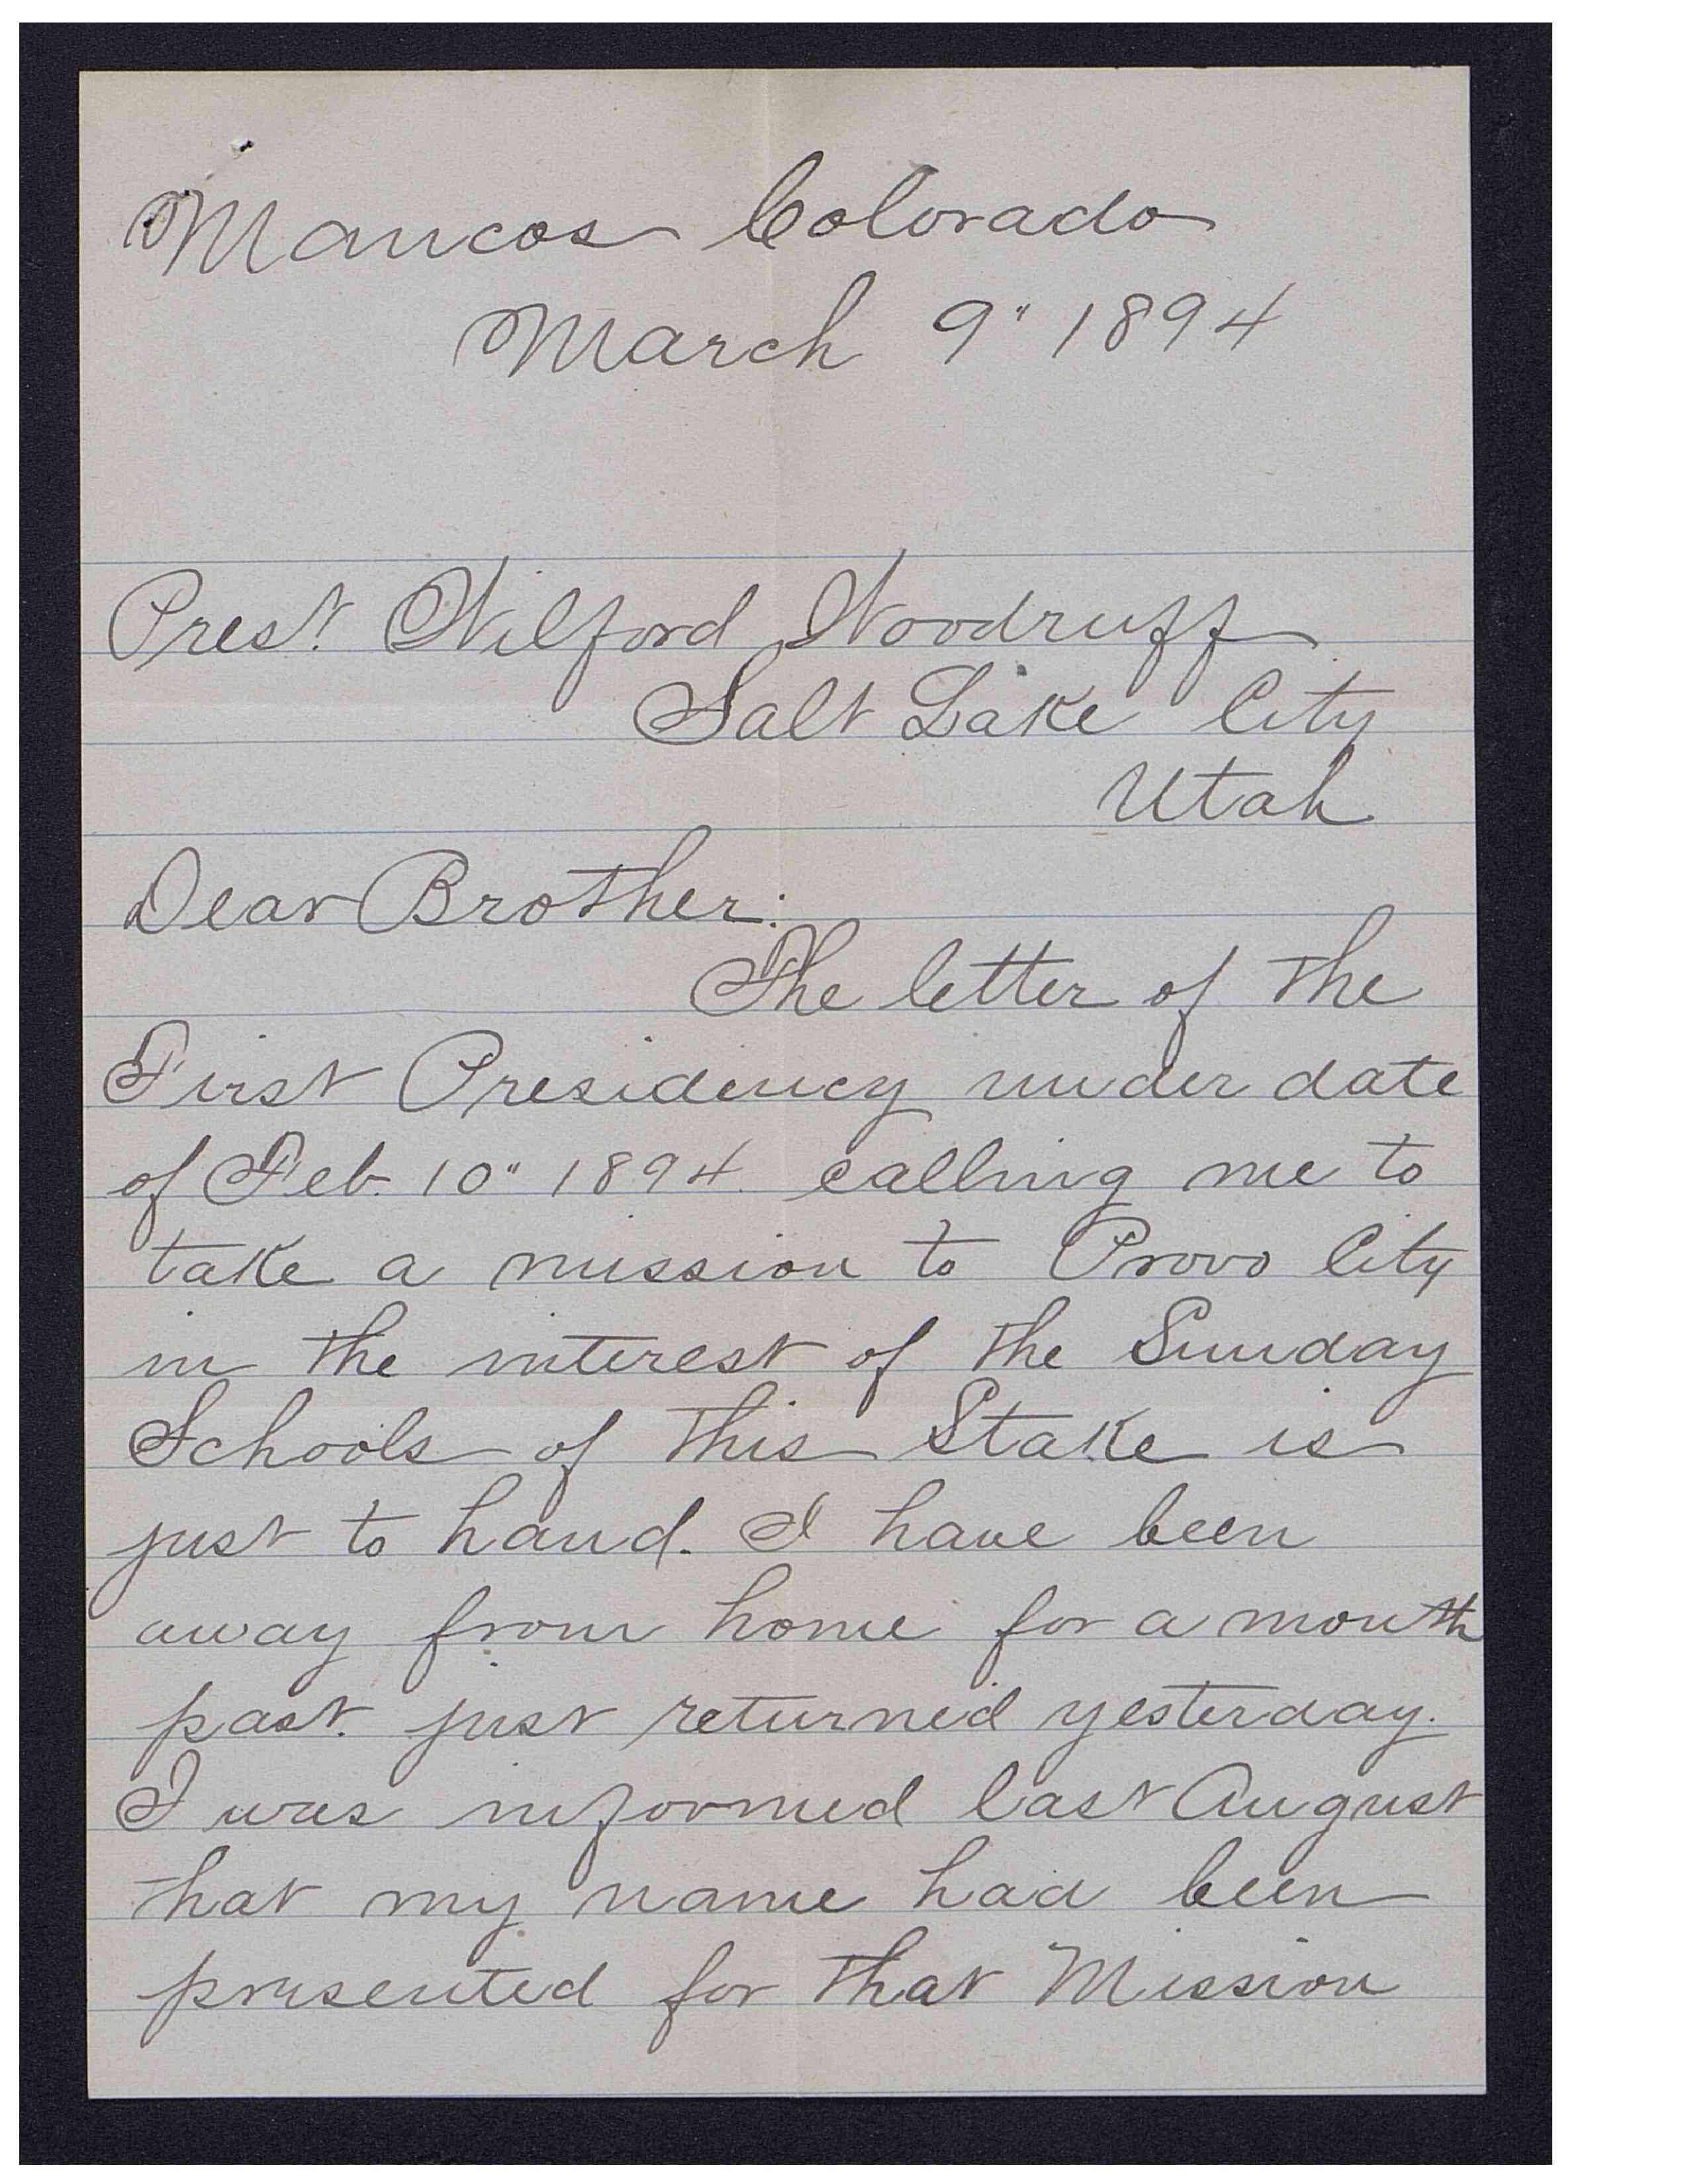 Mancos Colorado
March 9" 1894
Prest. Wilford Woodruff
Salt Lake City
Utah
Dear Brother:
The letter of the
First Presidency under date
of Feb. 10" 1894. calling me to
take a mission to Provo City
in the interest of the Sunday
Schools of this Stake is
just to hand. I have been
away from home for a month
past. just returned yesterday.
I was informed last August
that my name had been
presented for that Mission